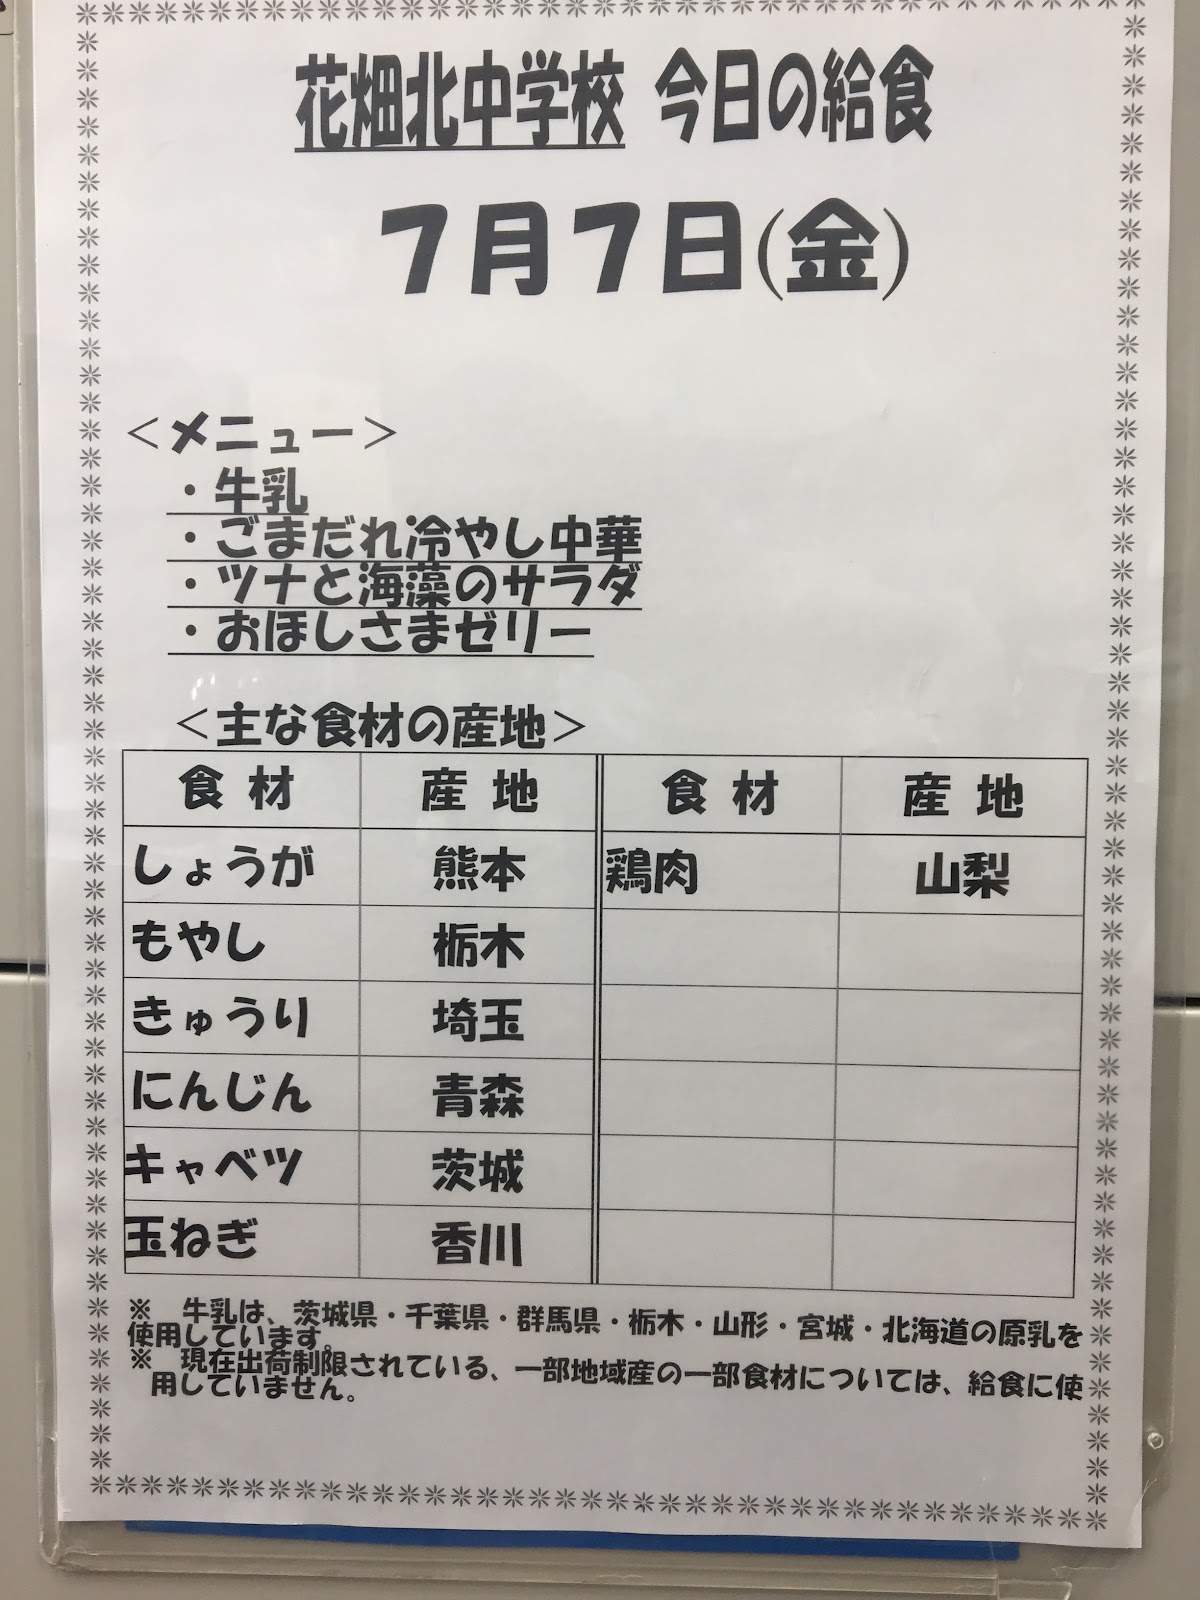 花畑北中学校 今日の給食
7月7日(金)
＜メニュー＞
・牛乳
・ごまだれ冷やし中華
・ツナと海藻のサラダ
・おほしさまゼリー
＜主な食材の産地＞
食材 産地 食材 産地
しょうが 熊本 鶏肉 山梨
もやし 栃木
きゅうり 埼玉
にんじん 青森
キャベツ 茨城
玉ねぎ 香川
※ 牛乳は、茨城県・千葉県・群馬県・栃木・山形・宮城・北海道の原乳を
使用しています。
※ 現在出荷制限されている、一部地域産の一部食材については、給食に使
用していません。